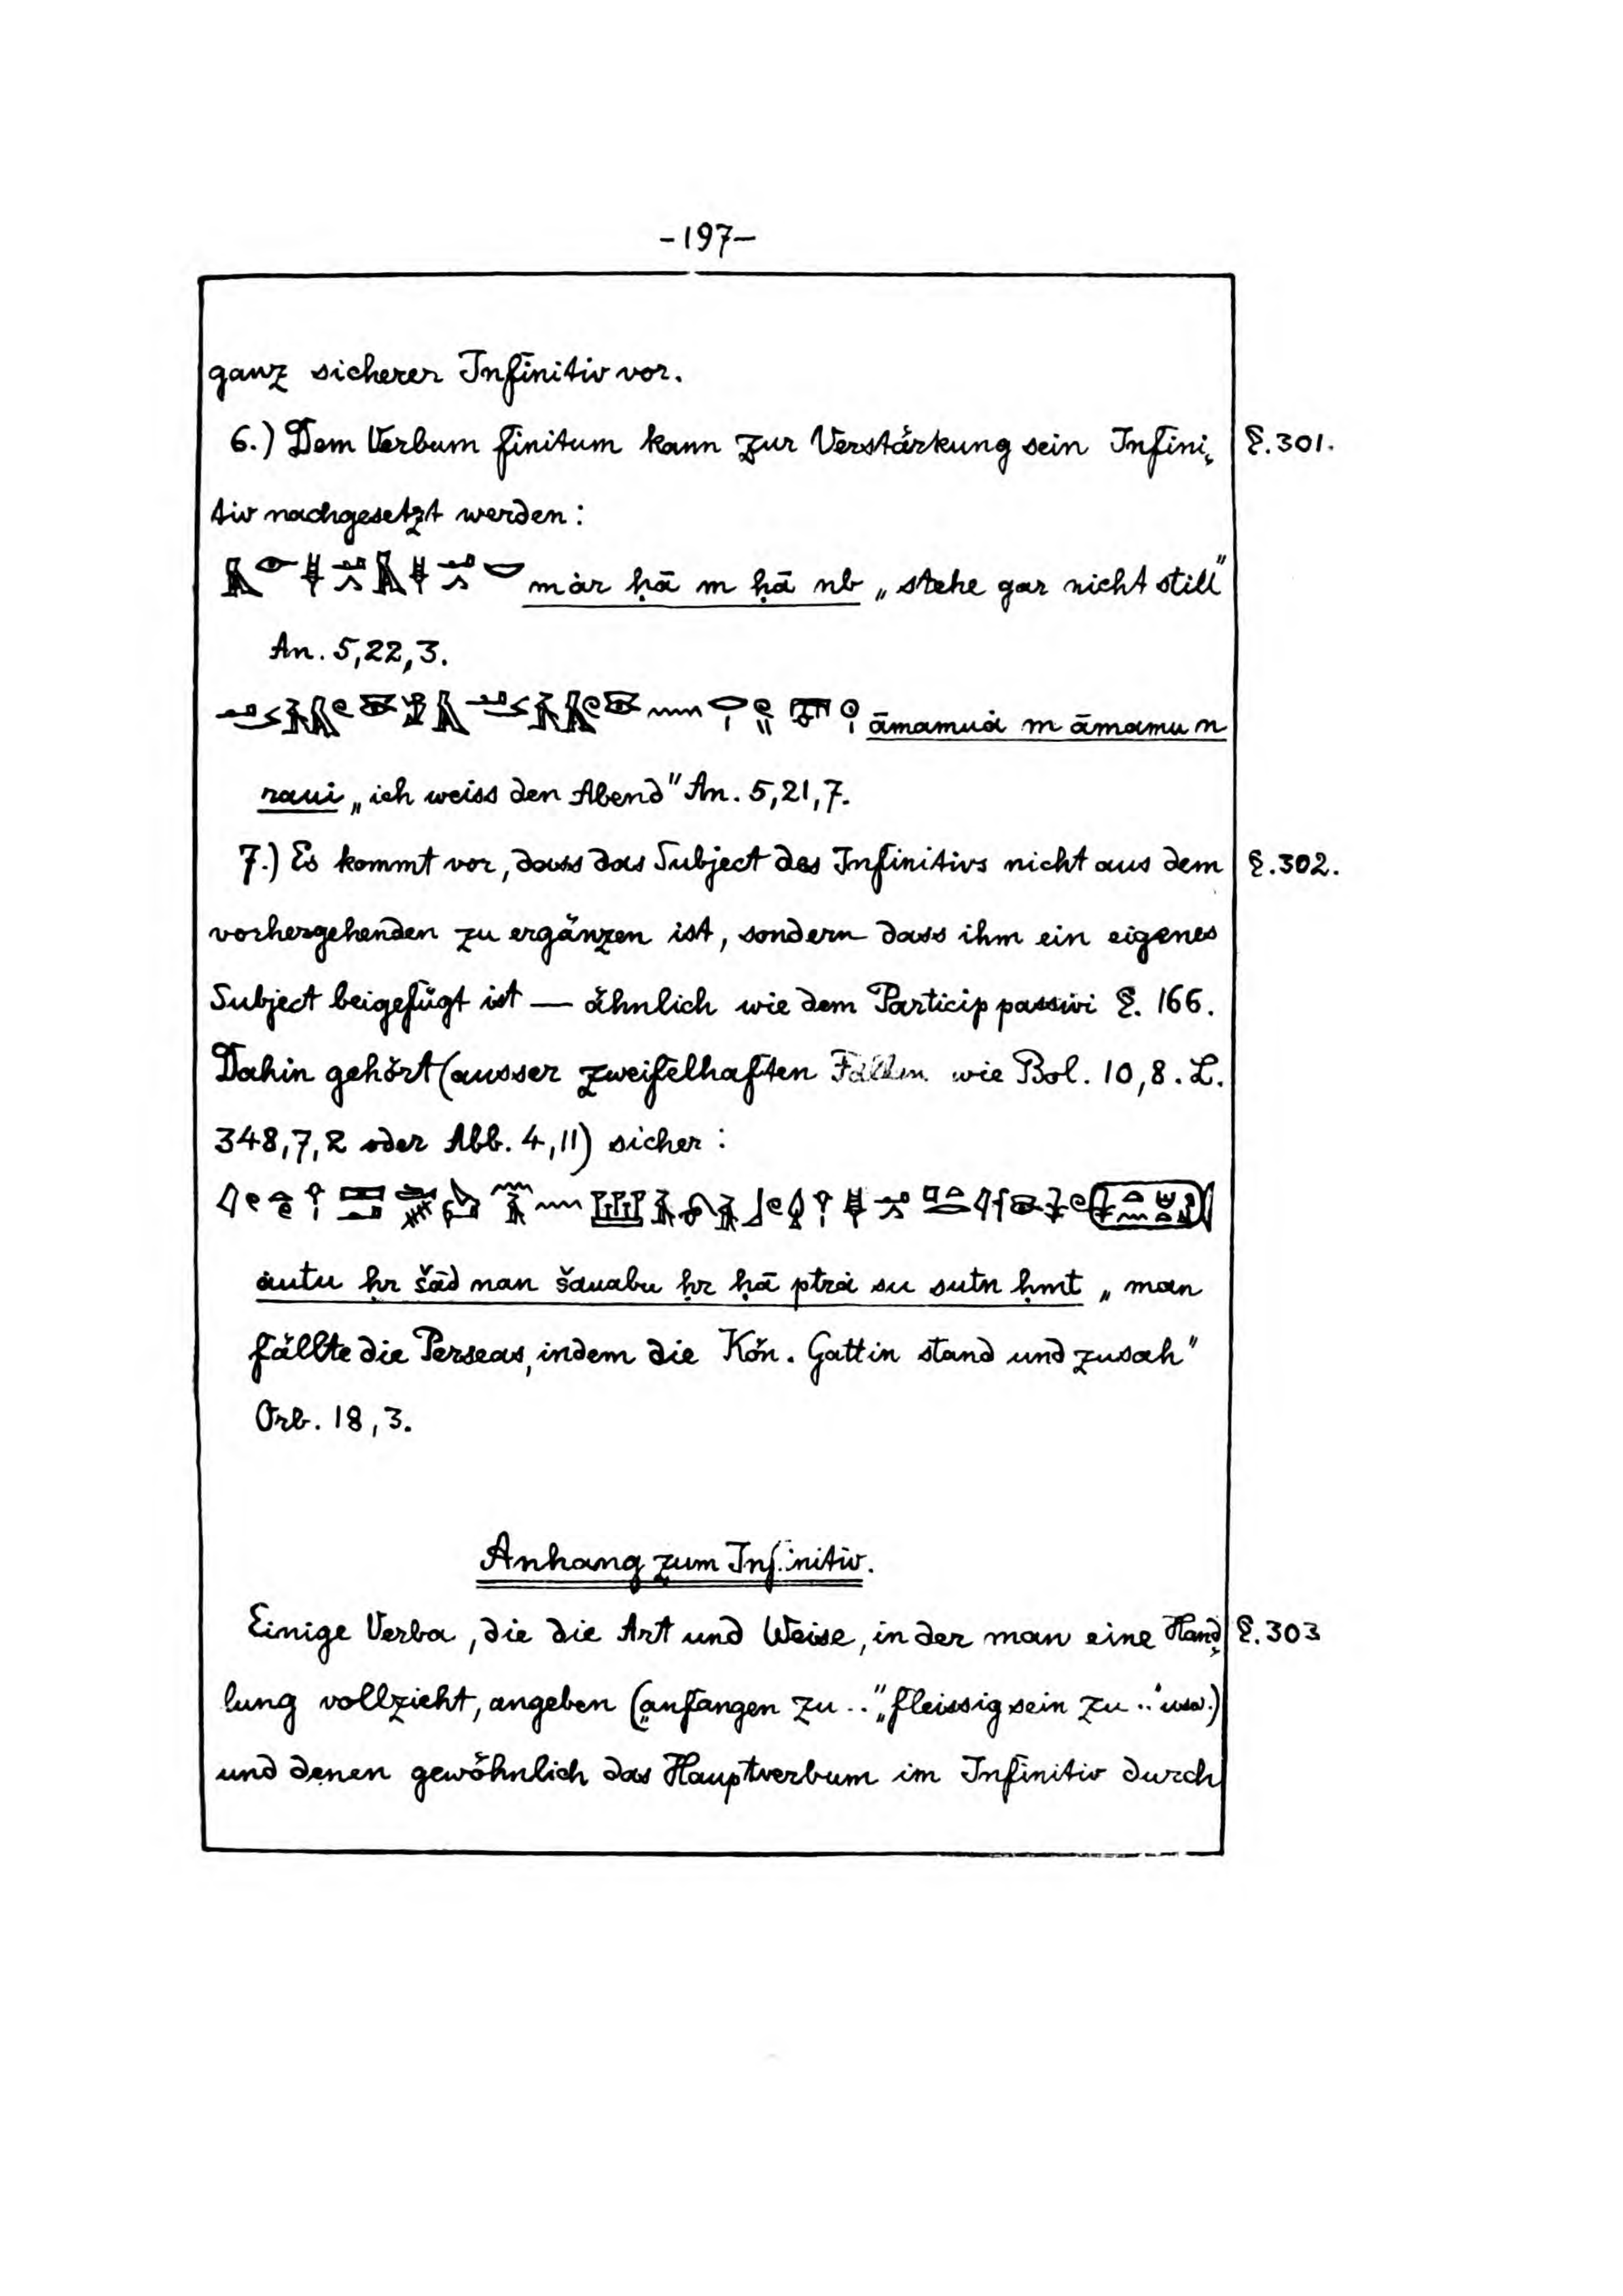 -197-
ganz sicherer Infinitiv vor.
6.) Dem Verbum finitum kann zur Verstärkung sein Infini- §.301.
tiv nachgesetzt werden:
mȧr ḥā m ḥā nb „stehe gar nicht still"
An. 5,22,3.
āmamuȧ m āmamu n
raui „ich weiss den Abend" An. 5,21,7.
7.) Es kommt vor, dass das Subject des Infinitivs nicht aus dem §.302.
vorhergehenden zu ergänzen ist, sondern dass ihm ein eigenes
Subject beigefügt ist — ähnlich wie dem Particip passivi §. 166.
Dahin gehört (ausser zweifelhaften Fällen wie Bol. 10,8. L.
348,7,2 oder Abb. 4,11) sicher:
ȧutu ḥr šād nan šauabu ḥr ḥā ptrȧ su sutn ḥmt „man
fällte die Perseas, indem die Kön. Gattin stand und zusah"
Orb. 18,3.
Anhang zum Infinitiv.
Einige Verba, die die Art und Weise, in der man eine Hand- §.303
lung vollzieht, angeben („anfangen zu.." „fleissig sein zu.." usw.)
und denen gewöhnlich das Hauptverbum im Infinitiv durch